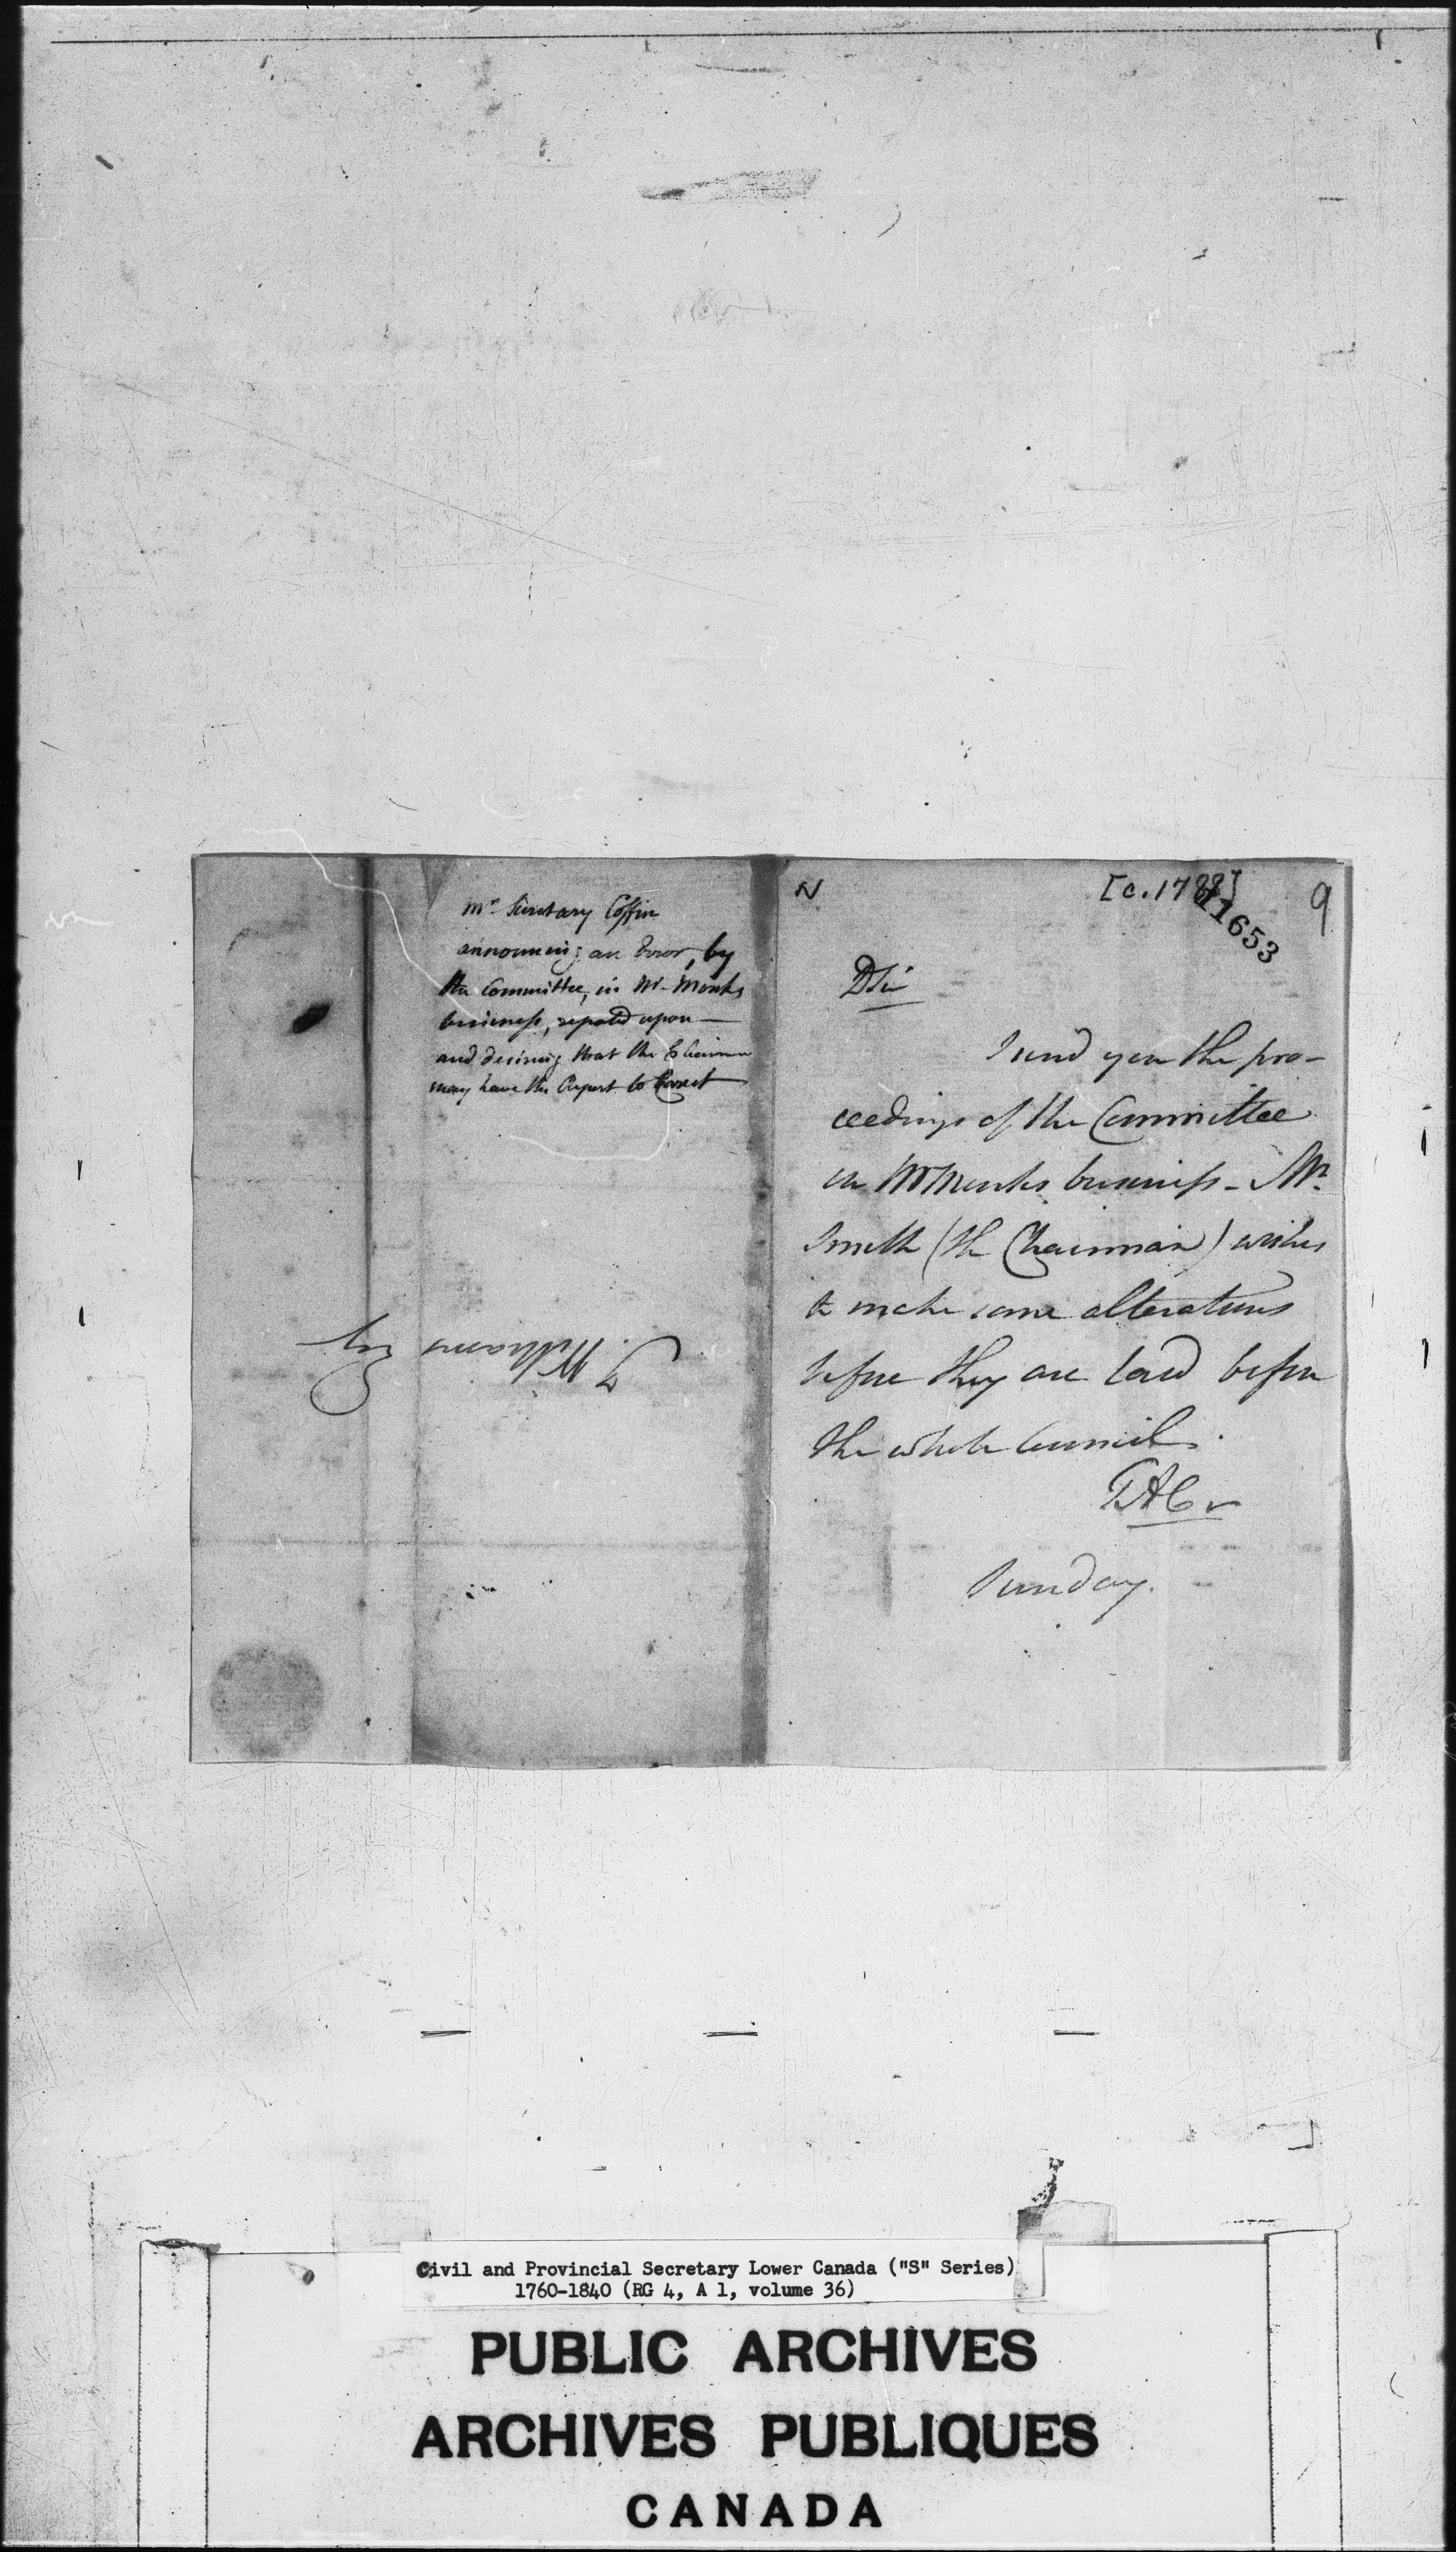 Mr. Secretary Coffin
announcing an Error, by
the Committee, in Mr. Monks
business, reported upon —
and desiring that the Chairman
may have the Report to Correct
J. Williams Esq
N
[c.1788]
11653
9
D Sir
I send you the pro-
ceedings of the Committee
on Mr Monks business - Mr.
Smith (the Chairman) wishes
to make some alterations
before they are laid before
the whole Council.
TAC
Sunday.
Civil and Provincial Secretary Lower Canada ("S" Series)
1760-1840 (RG 4, A 1, volume 36)
PUBLIC ARCHIVES
ARCHIVES PUBLIQUES
CANADA